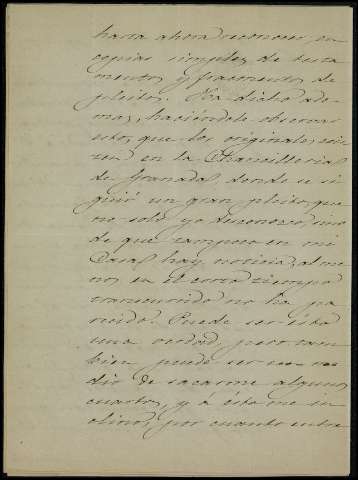 hasta ahora reconocer, en
copias simples de testa
mentos y fracmentos de
pleitos. Ha dicho ade
mas, haciéndole observar
esto, que los originales exis
ten en la Chancilleria
de Granada, donde se si
guió un gran pleito, que
no solo yo desconozco, sino
de que tampoco en mi
Casa hay noticia, al me
nos en el corto tiempo
transcurrido no ha pa
recido. Puede ser esto
una verdad, pero tam
bien puede ser un me
dio de sacarme algunos
cuartos, y á esto me in
clino, por cuanto entre